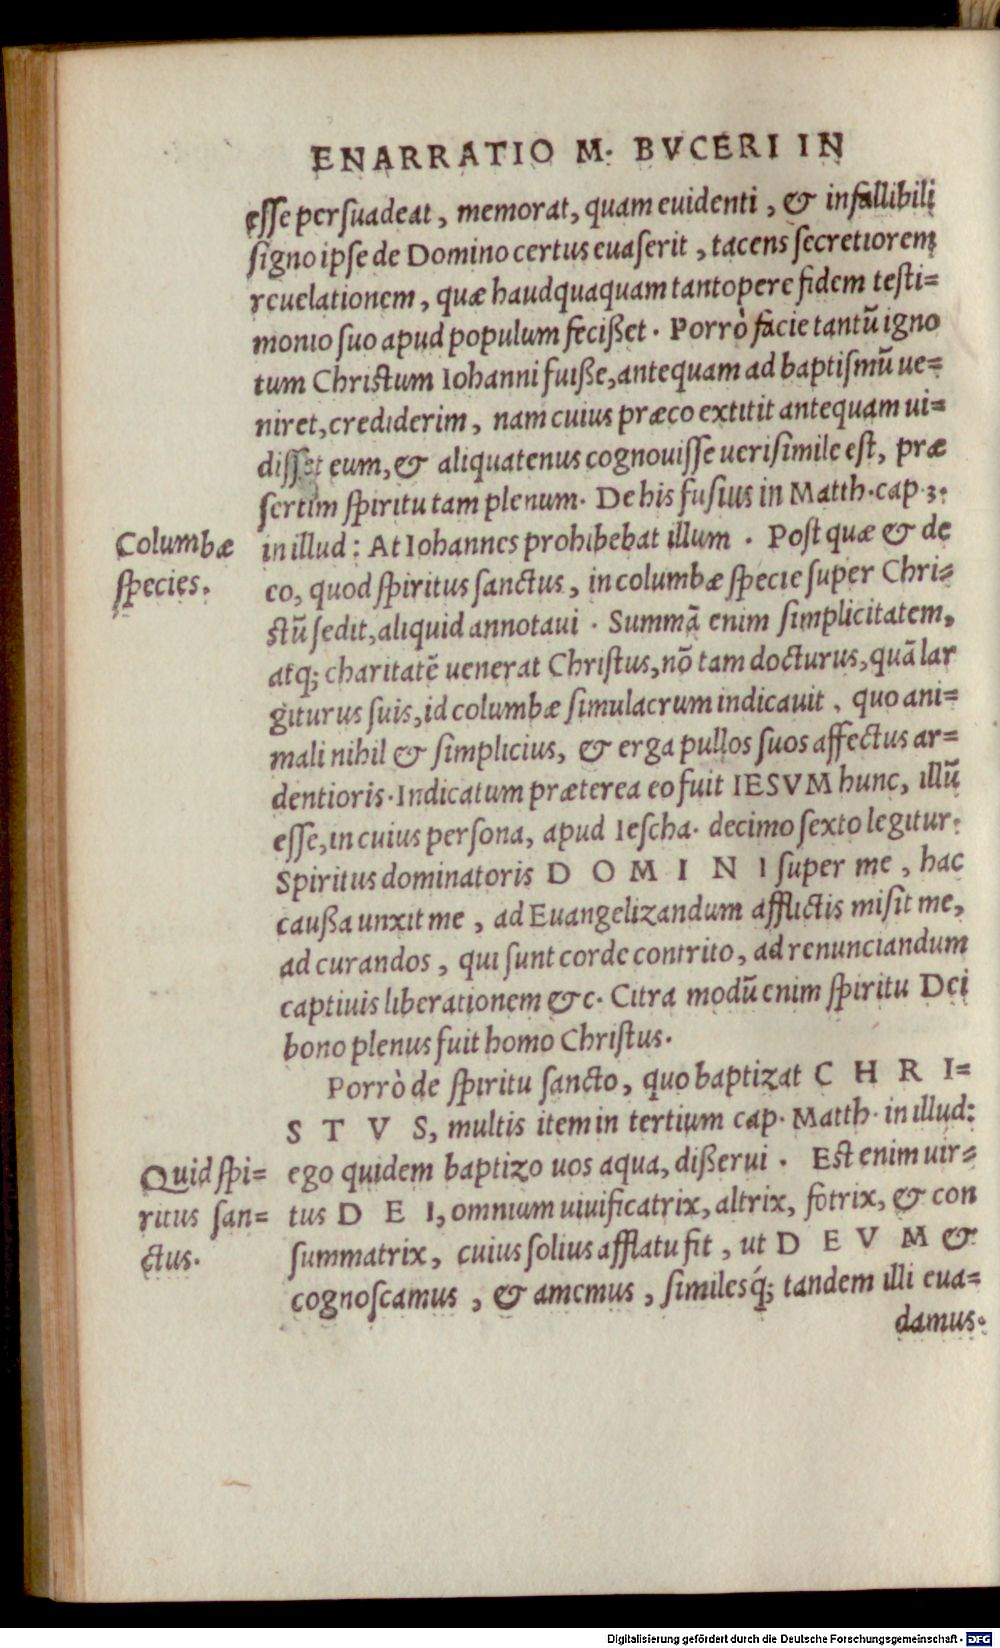 ENARRATIO M. BVCERI IN
esse persuadeat, memorat, quam euidenti, & infallibili
signo ipse de Domino certus euaserit, tacens secretiorem
reuelationem, quæ haudquaquam tantopere fidem testi=
monio suo apud populum fecißet. Porrò facie tantũ igno
tum Christum Iohanni fuiße, antequam ad baptismũ ue=
niret, crediderim, nam cuius præco extitit antequam ui=
disset eum, & aliquatenus cognouisse uerisimile est, præ
sertim spiritu tam plenum. De his fusius in Matth. cap. 3.
Columbæ
species.
in illud: At Iohannes prohibebat illum. Post quæ & de
eo, quod spiritus sanctus, in columbæ specie super Chri=
stũ sedit, aliquid annotaui. Summã enim simplicitatem,
atq; charitatẽ uenerat Christus, nõ tam docturus, quã lar
giturus suis, id columbæ simulacrum indicauit, quo ani=
mali nihil & simplicius, & erga pullos suos affectus ar=
dentioris. Indicatum præterea eo fuit IESVM hunc, illũ
esse, in cuius persona, apud Iescha. decimo sexto legitur:
Spiritus dominatoris DOMINI super me, hac
caußa unxit me, ad Euangelizandum afflictis misit me,
ad curandos, qui sunt corde contrito, ad renunciandum
captiuis liberationem &c. Citra modũ enim spiritu Dei
bono plenus fuit homo Christus.
Porrò de spiritu sancto, quo baptizat CHRI=
STVS, multis item in tertium cap. Matth. in illud:
Quid spi=
ritus san=
ctus.
ego quidem baptizo uos aqua, dißerui. Est enim uir=
tus DEI, omnium uiuificatrix, altrix, fotrix, & con
summatrix, cuius solius afflatu fit, ut DEVM &
cognoscamus, & amemus, similesq́; tandem illi eua=
damus.
Digitalisierung gefördert durch die Deutsche Forschungsgemeinschaft - DFG